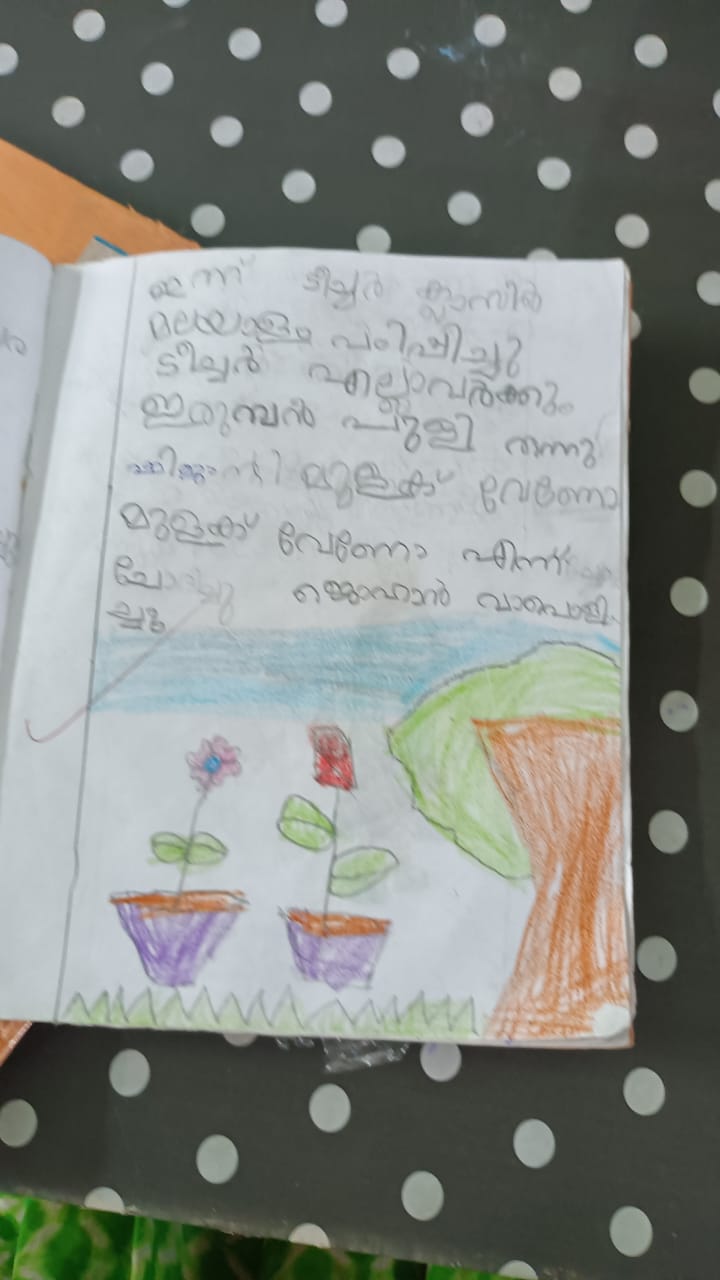 ഇന്ന് ടീച്ചർ ക്ലാസിൽ
മലയാളം പഠിപ്പിച്ചു
ടീച്ചർ എല്ലാവർക്കും
ഇരുമ്പൻ പുളി തന്നു
മുളക് വേണോ
മുളക് വേണോ എന്ന്
ജൊഹാൻ വാപൊളി
ച്ചു